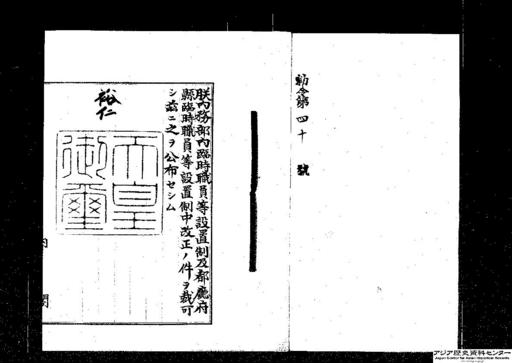 勅令第四十號
朕内務部内臨時職員等設置制及都廳府
縣臨時職員等設置制中改正ノ件ヲ裁可
シ茲ニ之ヲ公布セシム
裕仁
天皇
御璽
内閣
アジア歴史資料センター
Japan Center for Asian Historical Records